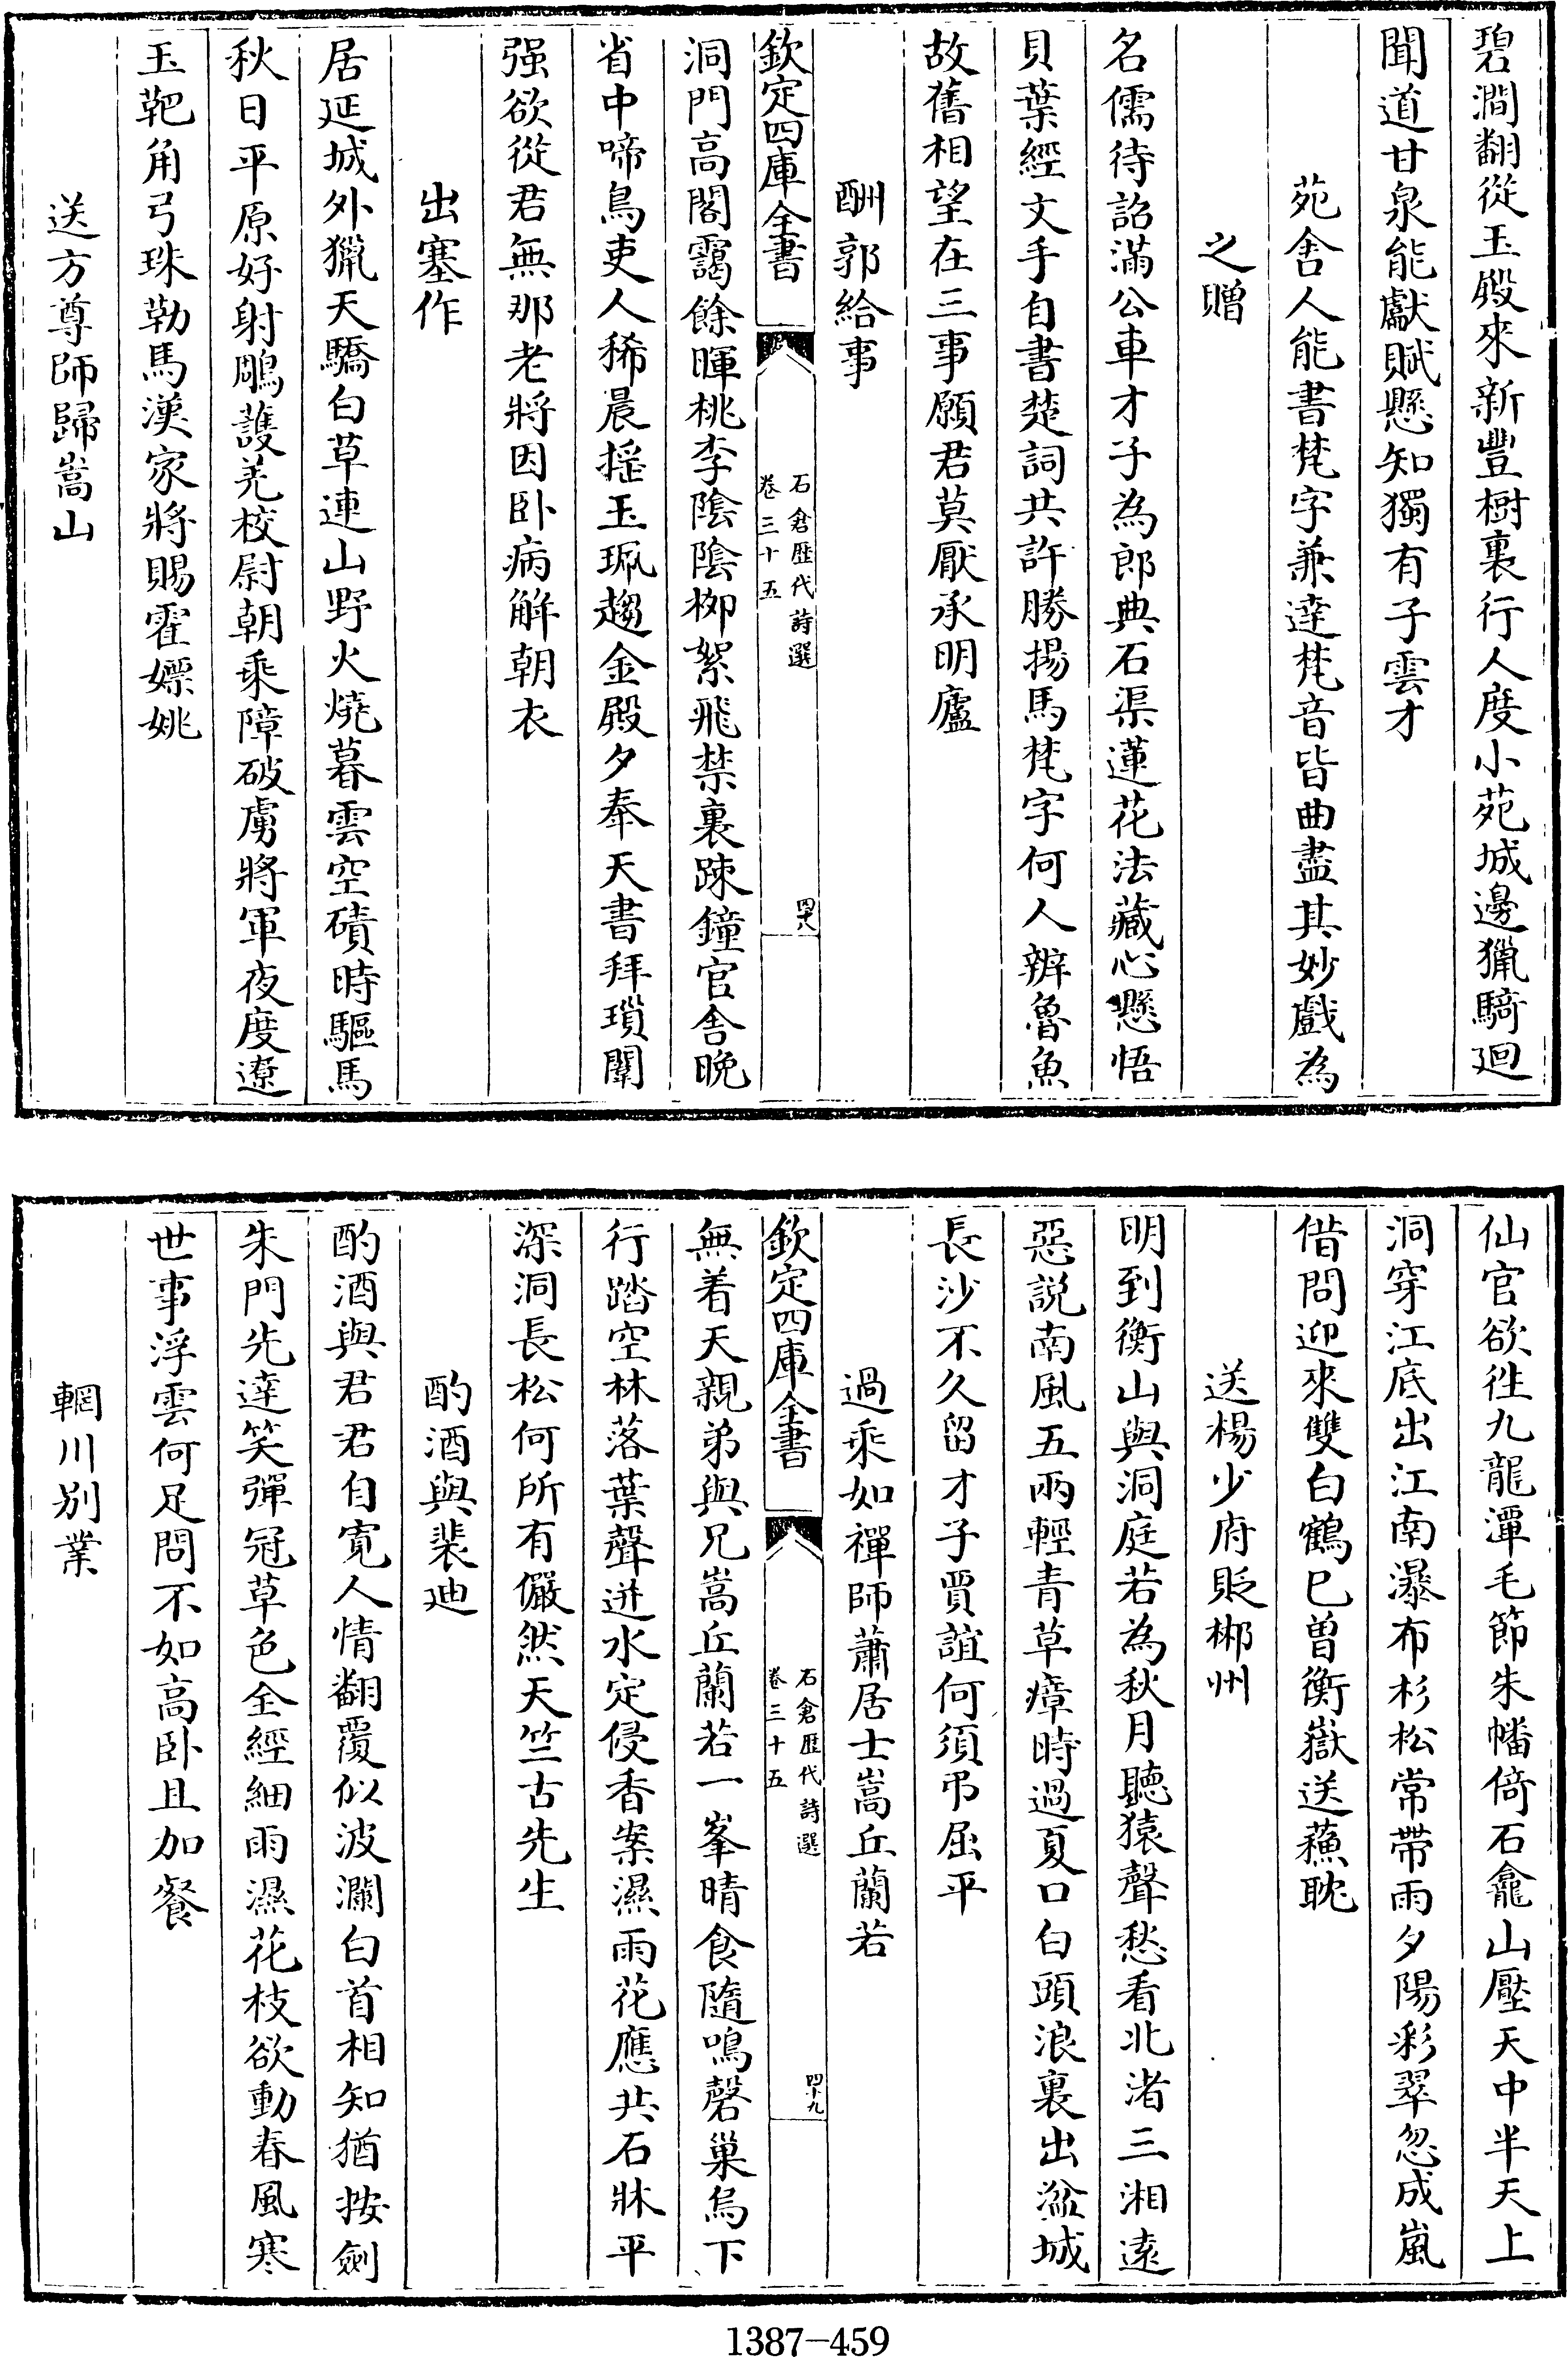 碧澗翻從玉殿來新豐樹裏行人度小苑城邊獵騎迴
聞道甘泉能獻賦懸知獨有子雲才
苑舍人能書梵字兼達梵音皆曲盡其妙戲為
之贈
名儒待詔滿公車才子為郎典石渠蓮花法藏心懸悟
貝葉經文手自書楚詞共許勝揚馬梵字何人辨魯魚
故舊相望在三事願君莫厭承明廬
酬郭給事
欽定四庫全書
石倉歷代詩選
卷三十五
四十八
洞門高閣靄餘暉桃李陰陰栁絮飛禁裏踈鐘官舍晚
省中啼鳥吏人稀晨揺玉珮趨金殿夕奉天書拜瑣闈
强欲從君無那老將因卧病解朝衣
出塞作
居延城外獵天驕白草連山野火燒暮雲空磧時驅馬
秋日平原好射鵰護羌校尉朝乘障破虜將軍夜度遼
玉靶角弓珠勒馬漢家將賜霍嫖姚
送方尊師歸嵩山
仙官欲徃九龍潭毛節朱幡倚石龕山壓天中半天上
洞穿江底出江南瀑布杉松常帶雨夕陽彩翠忽成嵐
借問迎來雙白鶴已曽衡嶽送蘓耽
送楊少府貶郴州
明到衡山與洞庭若為秋月聽猿聲愁看北渚三湘逺
惡説南風五兩輕青草瘴時過夏口白頭浪裏出湓城
長沙不久留才子賈誼何須弔屈平
過乘如禪師蕭居士嵩丘蘭若
欽定四庫全書
石倉歷代詩選
卷三十五
四十九
無着天親弟與兄嵩丘蘭若一峯晴食隨鳴磬巢烏下
行踏空林落葉聲迸水定侵香案濕雨花應共石牀平
深洞長松何所有儼然天竺古先生
酌酒與裴迪
酌酒與君君自寛人情翻覆似波瀾白首相知猶按劍
朱門先達笑彈冠草色全經細雨濕花枝欲動春風寒
世事浮雲何足問不如高卧且加餐
輞川别業
1387-459